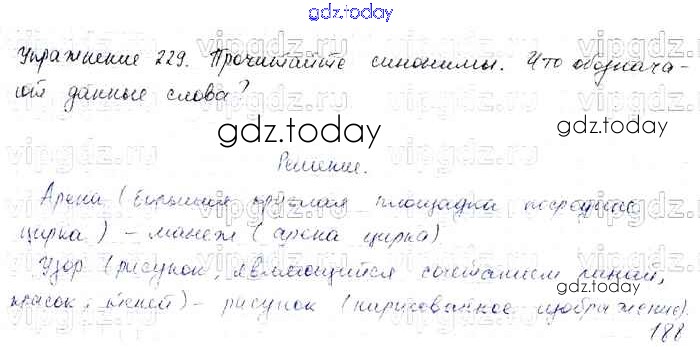 gdz.today
Упражнение 229. Прочитайте синонимы. Что обознача-
ют данные слова?
gdz.today
gdz.today
Решение.
Арена (большая круглая площадка посредине
цирка) - манеж (арена цирка)
Узор (рисунок, являющийся сочетанием линий,
красок, теней) - рисунок (нарисованное изображение).
gdz.today
188